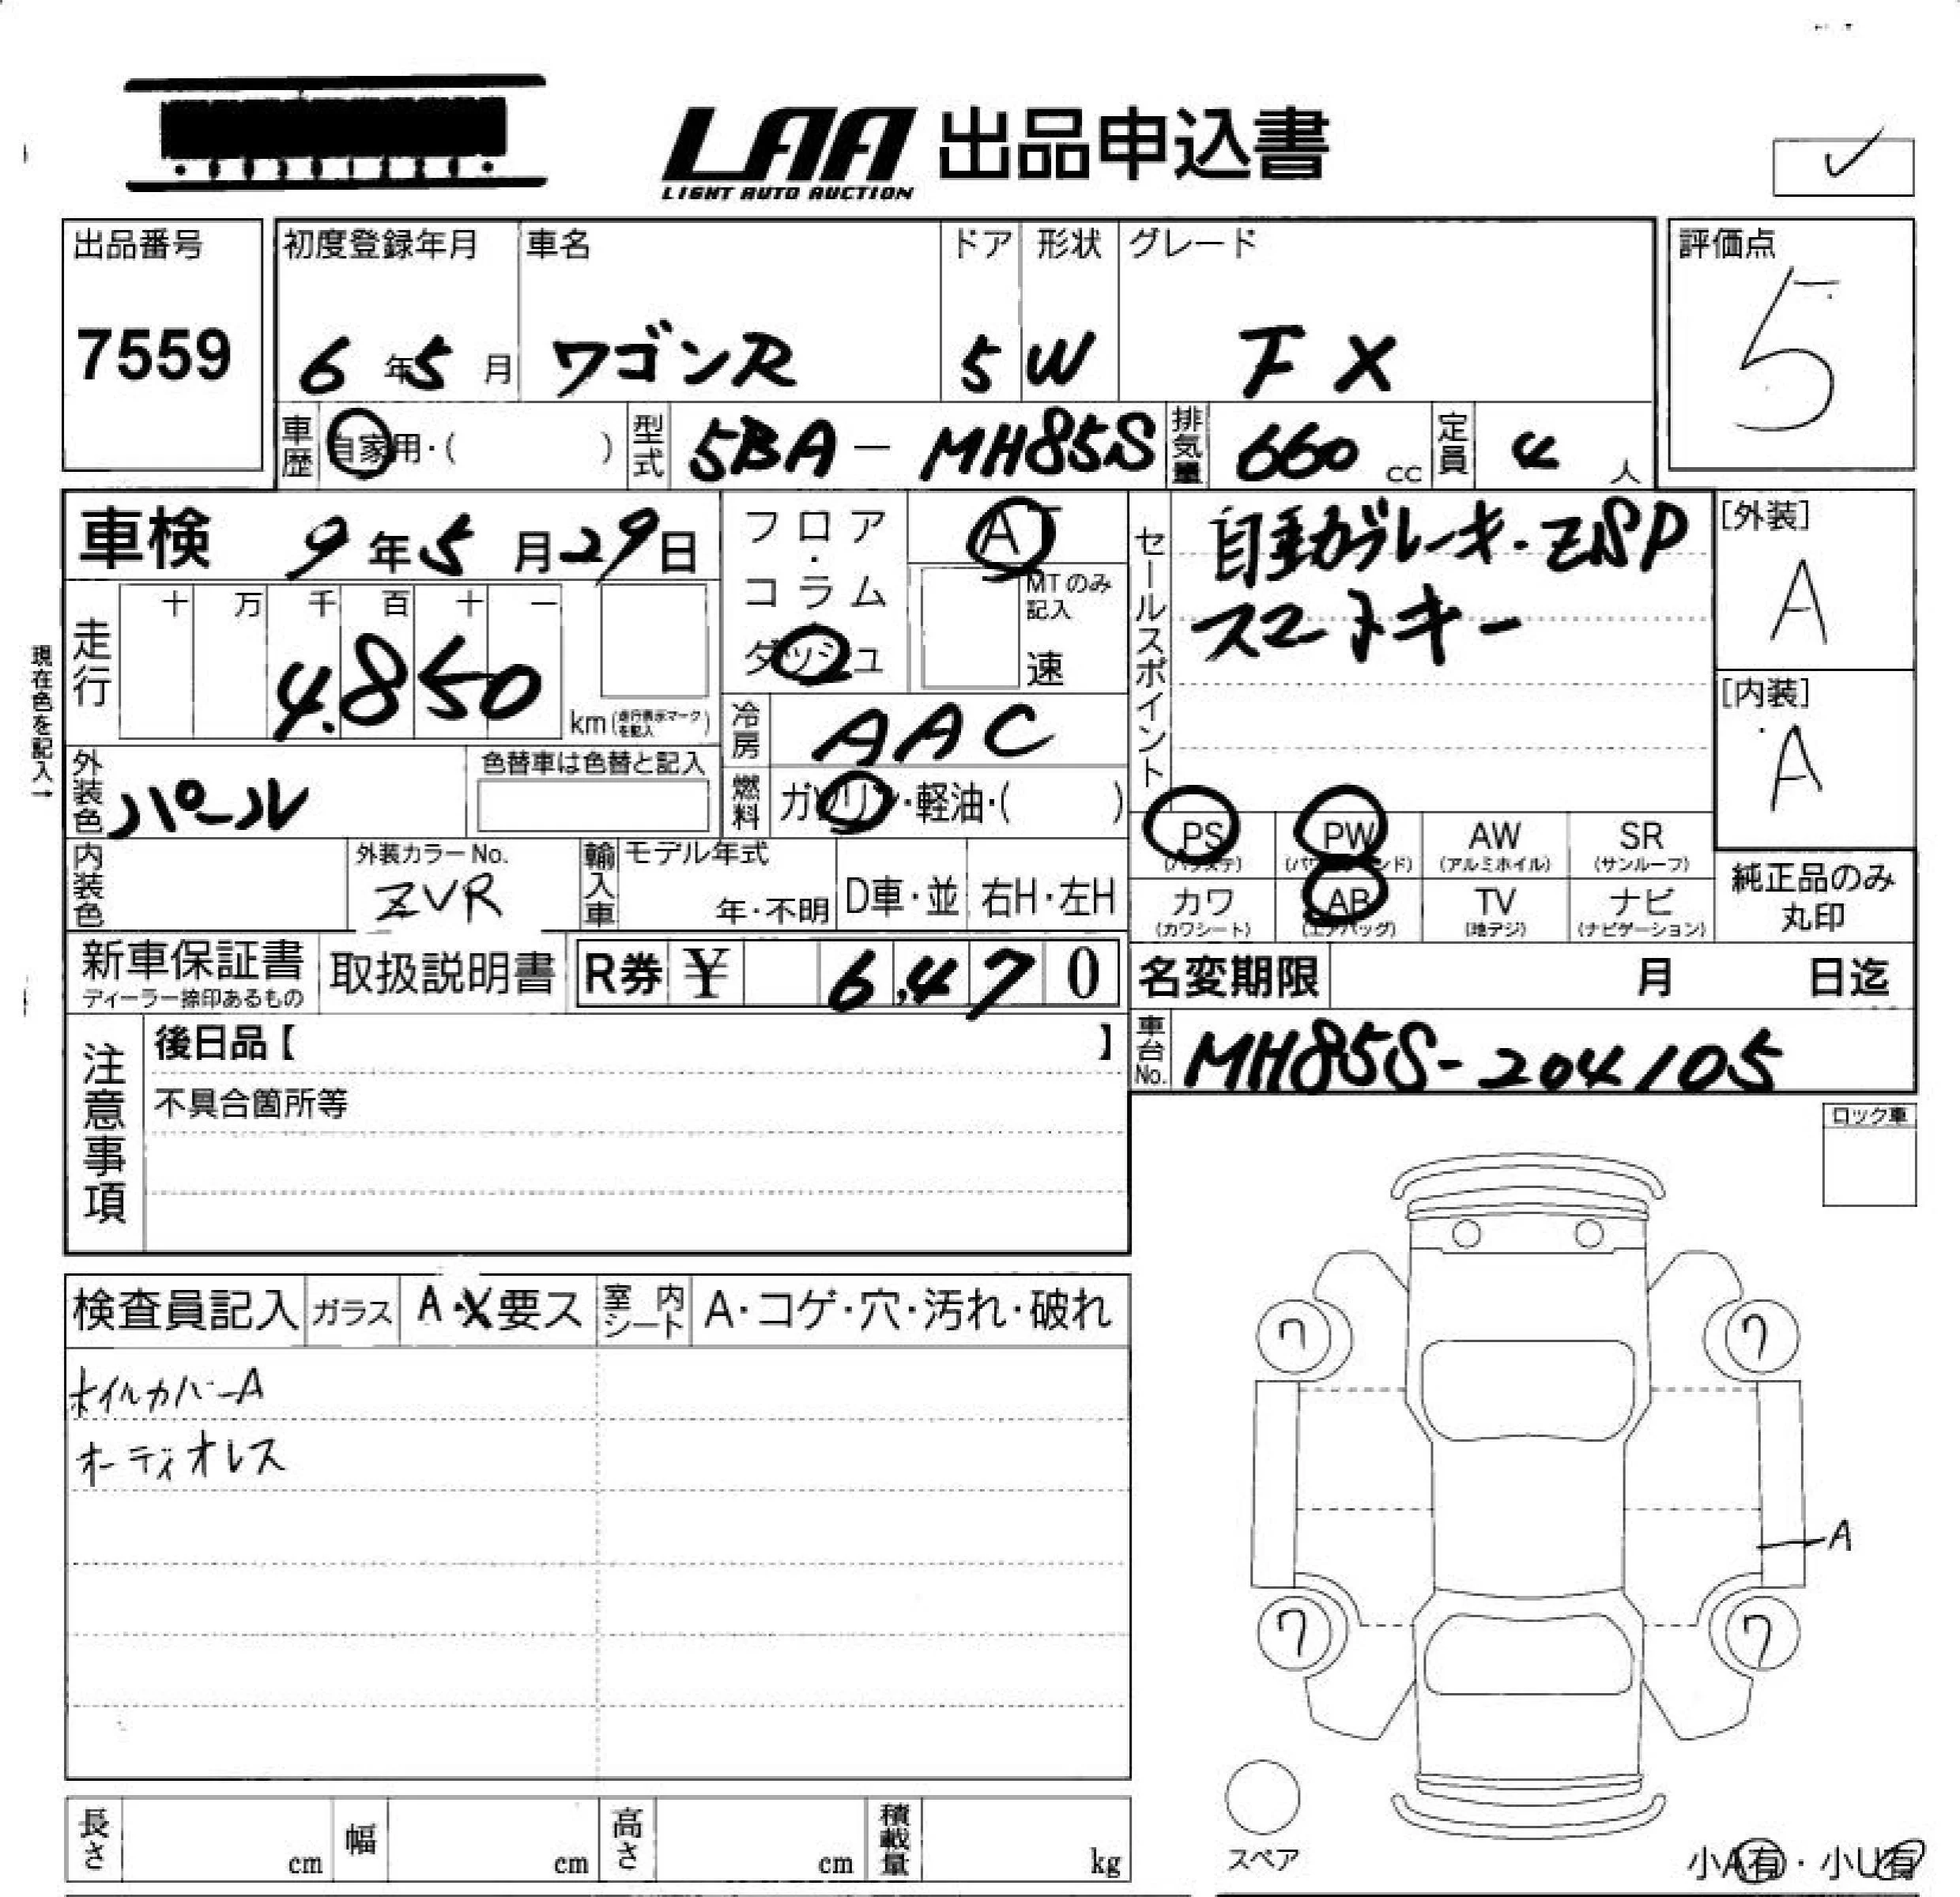 LAA 出品申込書
LIGHT AUTO AUCTION
出品番号
7559
初度登録年月
6年5月
車名
ワゴンR
ドア
5
形状
W
グレード
F X
評価点
5
車歴
自家用・( )
型式
5BA - MH85S
排気量
660 cc
定員
4 人
車検 9年5月29日
フロア・コラム
ダッシュ
AT
MTのみ記入
速
走行
十 万 千 百 十 一
4.850
km(走行表示マークを記入)
現在色を記入→
冷房
AAC
燃料
ガソリン・軽油・( )
外装色
パール
色替車は色替と記入
内装色
外装カラーNo.
ZVR
輸入車
モデル年式
年・不明
D車・並
右H・左H
セールスポイント
自動ブレーキ・
スマートキー
[外装]
A
[内装]
A
PS
(パワステ)
PW
(パワーウインド)
AW
(アルミホイル)
SR
(サンルーフ)
カワ
(カワシート)
AB
(エアバッグ)
TV
(地デジ)
ナビ
(ナビゲーション)
純正品のみ
丸印
新車保証書
ディーラー捺印あるもの
取扱説明書
R券 ¥ 6,470
名変期限 月 日迄
車台No.
MH85S-204105
注意事項
後日品【 】
不具合箇所等
ロック車
検査員記入
ガラス
A・X要ス
室内シート
A・コゲ・穴・汚れ・破れ
ホイルカバーA
オーディオレス
7
7
A
7
7
スペア
小A有・小U有
長さ cm
幅 cm
高さ cm
積載量 kg